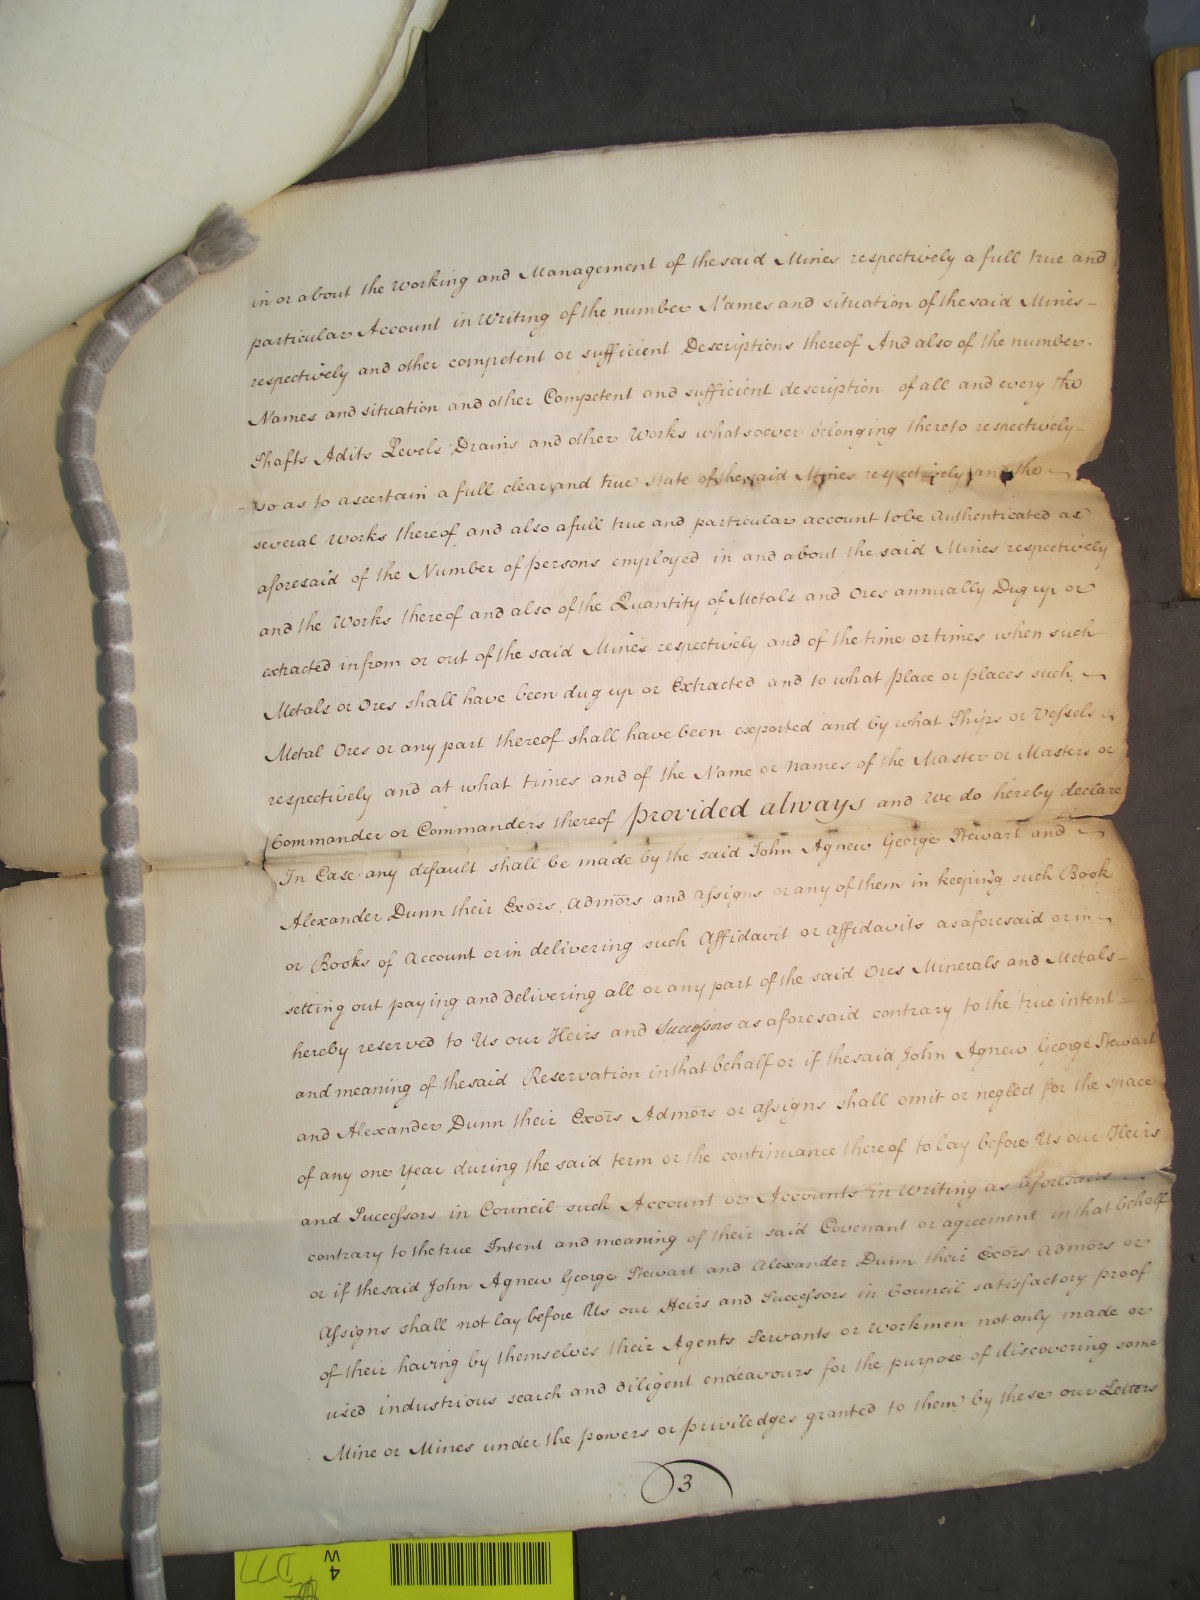 in or about the working and Management of the said Mines respectively a full true and
particular Account in Writing of the number Names and situation of the said Mines -
respectively and other competent or sufficient Descriptions thereof And also of the number
Names and situation and other Competent and sufficient description of all and every the
Shafts Adits Levels Drains and other Works whatsoever belonging thereto respectively -
so as to ascertain a full clear and true state of the said Mines respectively and the
several works thereof and also a full true and particular account to be Authenticated as
aforesaid of the Number of persons employed in and about the said Mines respectively
and the Works thereof and also of the Quantity of Metals and Ores annually Dug up or
extracted in from or out of the said Mines respectively and of the time or times when such
Metals or Ores shall have been dug up or Extracted and to what place or places such
Metal Ores or any part thereof shall have been exported and by what Ships or Vessels
respectively and at what times and of the Name or names of the Master or Masters or
Commander or Commanders thereof provided always and We do hereby declare
In Case any default shall be made by the said John Agnew George Stewart and
Alexander Dunn their Exõrs Admõrs and assigns or any of them in keeping such Book
or Books of Account or in delivering such Affidavit or affidavits as aforesaid or in
setting out paying and delivering all or any part of the said Ores Minerals and Metals -
hereby reserved to Us our Heirs and Successors as aforesaid contrary to the true intent -
and meaning of the said Reservation in that behalf or if the said John Agnew George Stewart
and Alexander Dunn their Exõrs Admõrs or assigns shall omit or neglect for the space
of any one Year during the said term or the continuance thereof to lay before Us our Heirs
and Successors in Council such Account or Accounts in Writing as aforesaid
contrary to the true Intent and meaning of their said Covenant or agreement in that behalf
or if the said John Agnew George Stewart and Alexander Dunn their Exõrs Admõrs or
Assigns shall not lay before Us our Heirs and Successors in Council satisfactory proof
of their having by themselves their Agents Servants or workmen not only made or
used industrious search and diligent endeavours for the purpose of discovering some
Mine or Mines under the powers or priviledges granted to them by these our Letters
3
4
W
D77